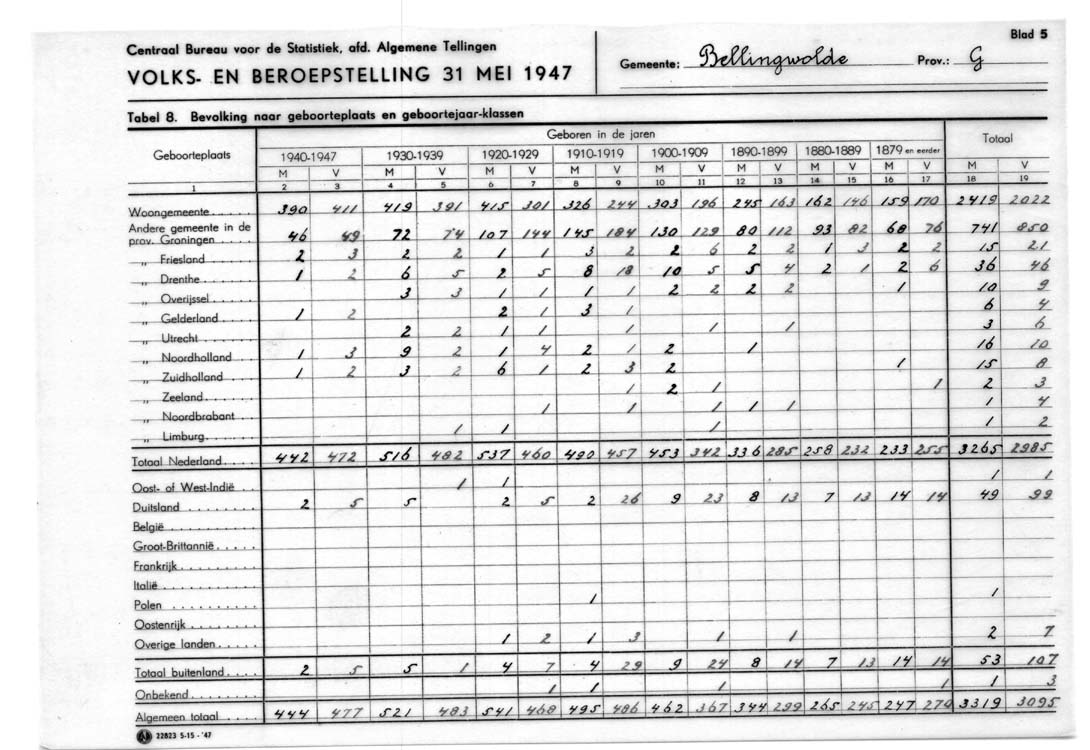 Blad 5
Centraal Bureau voor de Statistiek, afd. Algemene Tellingen
Gemeente: Bellingwolde Prov.: G
VOLKS- EN BEROEPSTELLING 31 MEI 1947
Tabel 8. Bevolking naar geboorteplaats en geboortejaar-klassen
Geboorteplaats Geboren in de jaren Totaal
1940-1947 1930-1939 1920-1929 1910-1919 1900-1909 1890-1899 1880-1889 1879 en eerder
M V M V M V M V M V M V M V M V M V
1 2 3 4 5 6 7 8 9 10 11 12 13 14 15 16 17 18 19
Woongemeente..... 390 411 419 391 415 301 326 244 303 196 245 163 162 146 159 170 2419 2022
Andere gemeente in de
prov. Groningen..... 46 49 72 74 107 144 145 184 130 129 80 112 93 82 68 76 741 850
„ Friesland..... 2 3 2 2 1 1 3 2 2 6 2 2 1 3 2 2 15 21
„ Drenthe..... 1 2 6 5 2 5 8 18 10 5 5 4 2 1 2 6 36 46
„ Overijssel..... 3 3 1 1 1 1 2 2 2 2 1 10 9
„ Gelderland..... 1 2 2 1 3 1 6 4
„ Utrecht..... 2 2 1 1 1 1 1 3 6
„ Noordholland.... 1 3 9 2 1 4 2 1 2 1 16 10
„ Zuidholland.... 1 2 3 2 6 1 2 3 2 1 15 8
„ Zeeland..... 1 2 1 1 2 3
„ Noordbrabant ... 1 1 1 1 1 1 4
„ Limburg..... 1 1 1 1 2
Totaal Nederland..... 442 472 516 482 537 460 490 457 453 342 336 285 258 232 233 255 3265 2985
Oost- of West-Indië .. 1 1 1 1
Duitsland ......... 2 5 5 2 5 2 26 9 23 8 13 7 13 14 14 49 99
België ..........
Groot-Brittannië.....
Frankrijk .........
Italië ..........
Polen .......... 1 1
Oostenrijk ........
Overige landen...... 1 2 1 3 1 1 2 7
Totaal buitenland..... 2 5 5 1 4 7 4 29 9 24 8 14 7 13 14 14 53 107
Onbekend........ 1 1 1 1 1 3
Algemeen totaal..... 444 477 521 483 541 468 495 486 462 367 344 299 265 245 247 270 3319 3095
22823 5-15-'47